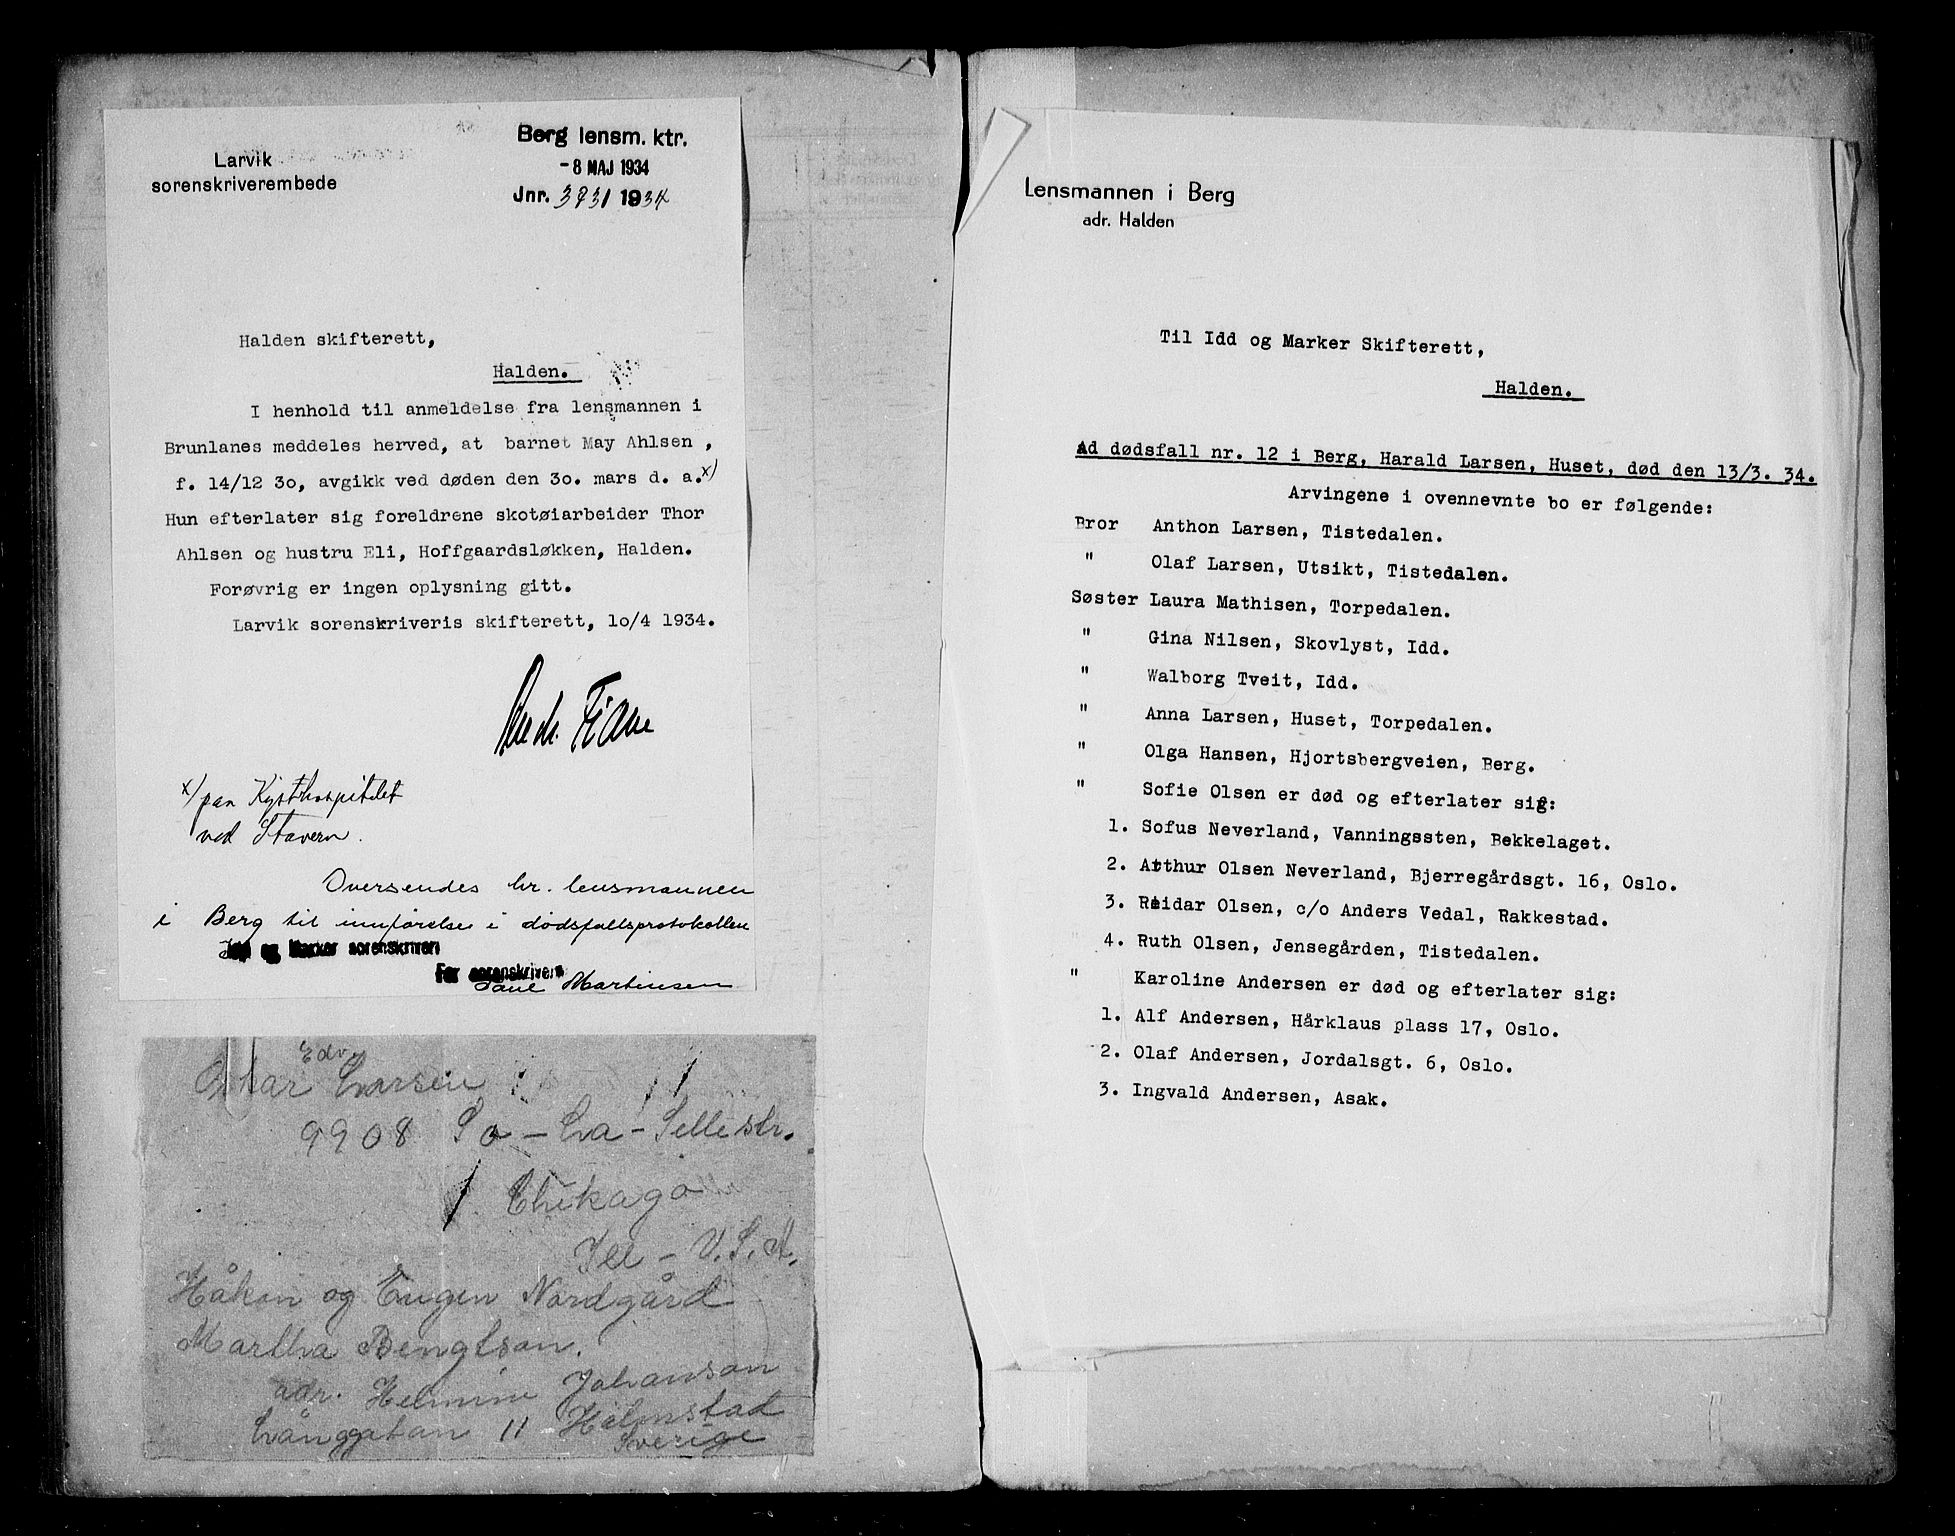 Larvik
sorenskriverembede
Berg lensm. ktr.
- 8 MAJ 1934
Jnr. 3731 1934
Halden skifterett,
Halden.
I henhold til anmeldelse fra lensmannen i
Brunlanes meddeles herved, at barnet May Ahlsen ,
f. 14/12 3o, avgikk ved døden den 3o. mars d. a. x)
Hun efterlater sig foreldrene skotøiarbeider Thor
Ahlsen og hustru Eli, Hoffgaardsløkken, Halden.
Forøvrig er ingen oplysning gitt.
Larvik sorenskriveris skifterett, 1o/4 1934.
x) paa Kysthospitalet
ved Stavern.
Oversendes hr. lensmannen
i Berg til innførelse i dødsfallsprotokollen
Idd og Marker sorenskriveri
For sorenskriveren
Martinsen
Edv.
Oskar Larsen
9908 So - La - Selle str.
Chikago
Ill - U.S.A.
Håkon og Eugen Nordgård
Martha Bengtson.
adr. Helmine Johanson
Långgatan 11 Halmstad
Sverige
Lensmannen i Berg
adr. Halden
Til Idd og Marker Skifterett,
Halden.
Ad dødsfall nr. 12 i Berg, Harald Larsen, Huset, død den 13/3. 34.
Arvingene i ovennevnte bo er følgende:
Bror Anthon Larsen, Tistedalen.
" Olaf Larsen, Utsikt, Tistedalen.
Søster Laura Mathisen, Torpedalen.
" Gina Nilsen, Skovlyst, Idd.
" Walborg Tveit, Idd.
" Anna Larsen, Huset, Torpedalen.
" Olga Hansen, Hjortsbergveien, Berg.
" Sofie Olsen er død og efterlater sig:
1. Sofus Neverland, Vanningssten, Bekkelaget.
2. Arthur Olsen Neverland, Bjerregårdsgt. 16, Oslo.
3. Reidar Olsen, c/o Anders Vedal, Rakkestad.
4. Ruth Olsen, Jensegården, Tistedalen.
" Karoline Andersen er død og efterlater sig:
1. Alf Andersen, Hårklaus plass 17, Oslo.
2. Olaf Andersen, Jordalsgt. 6, Oslo.
3. Ingvald Andersen, Asak.